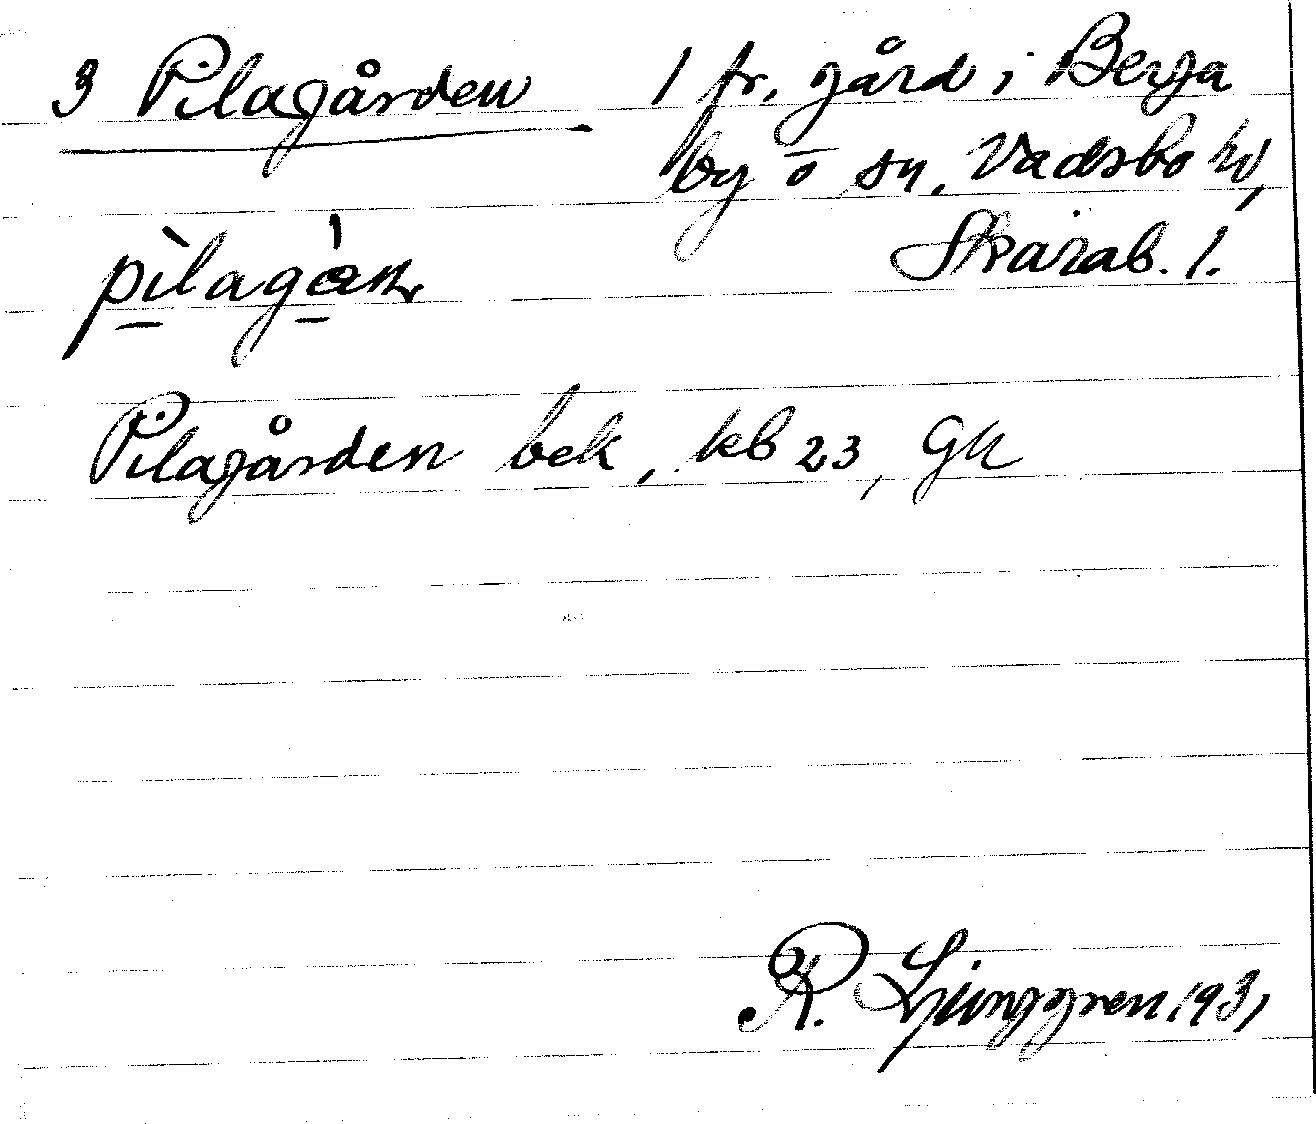 3 Pilagården 1 fr. gård i Berga
by o sn, Vadsbo hd,
Skarab. l.
Pilagården bek, kb 23, GK
R. Ljunggren 1931